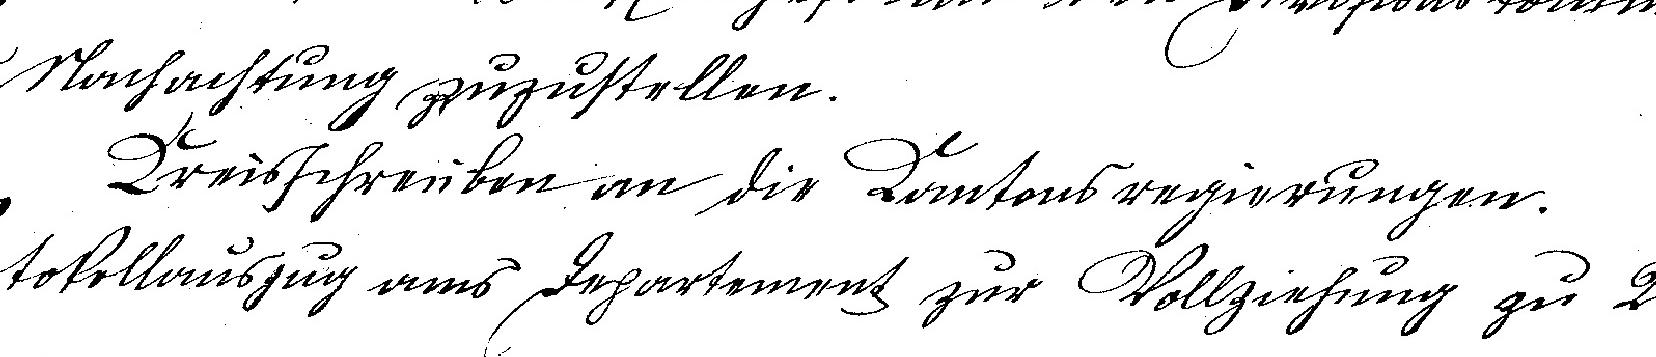 Nachachtung zuzustellen.
Kreisschreiben an die Kantonsregierungen.
tokollauszug ans Departement zur Vollziehung zu